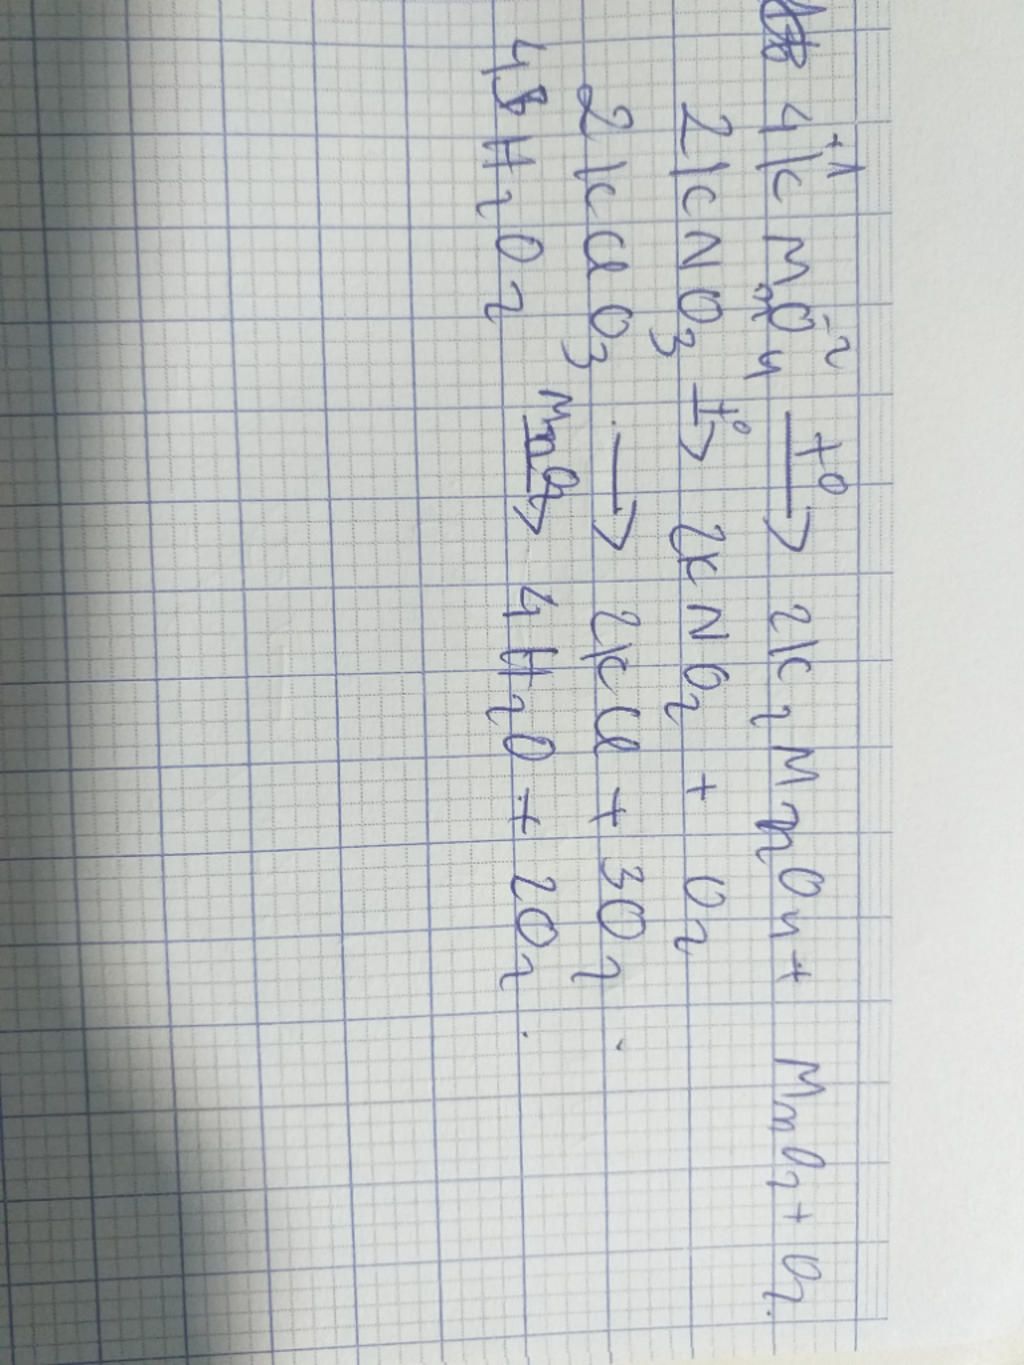 4KMnO4 t° → 2K2MnO4 + MnO2 + O2.
2KNO3 t° → 2KNO2 + O2
2KClO3 → 2KCl + 3O2.
4H2O2 MnO2 → 4H2O + 2O2.